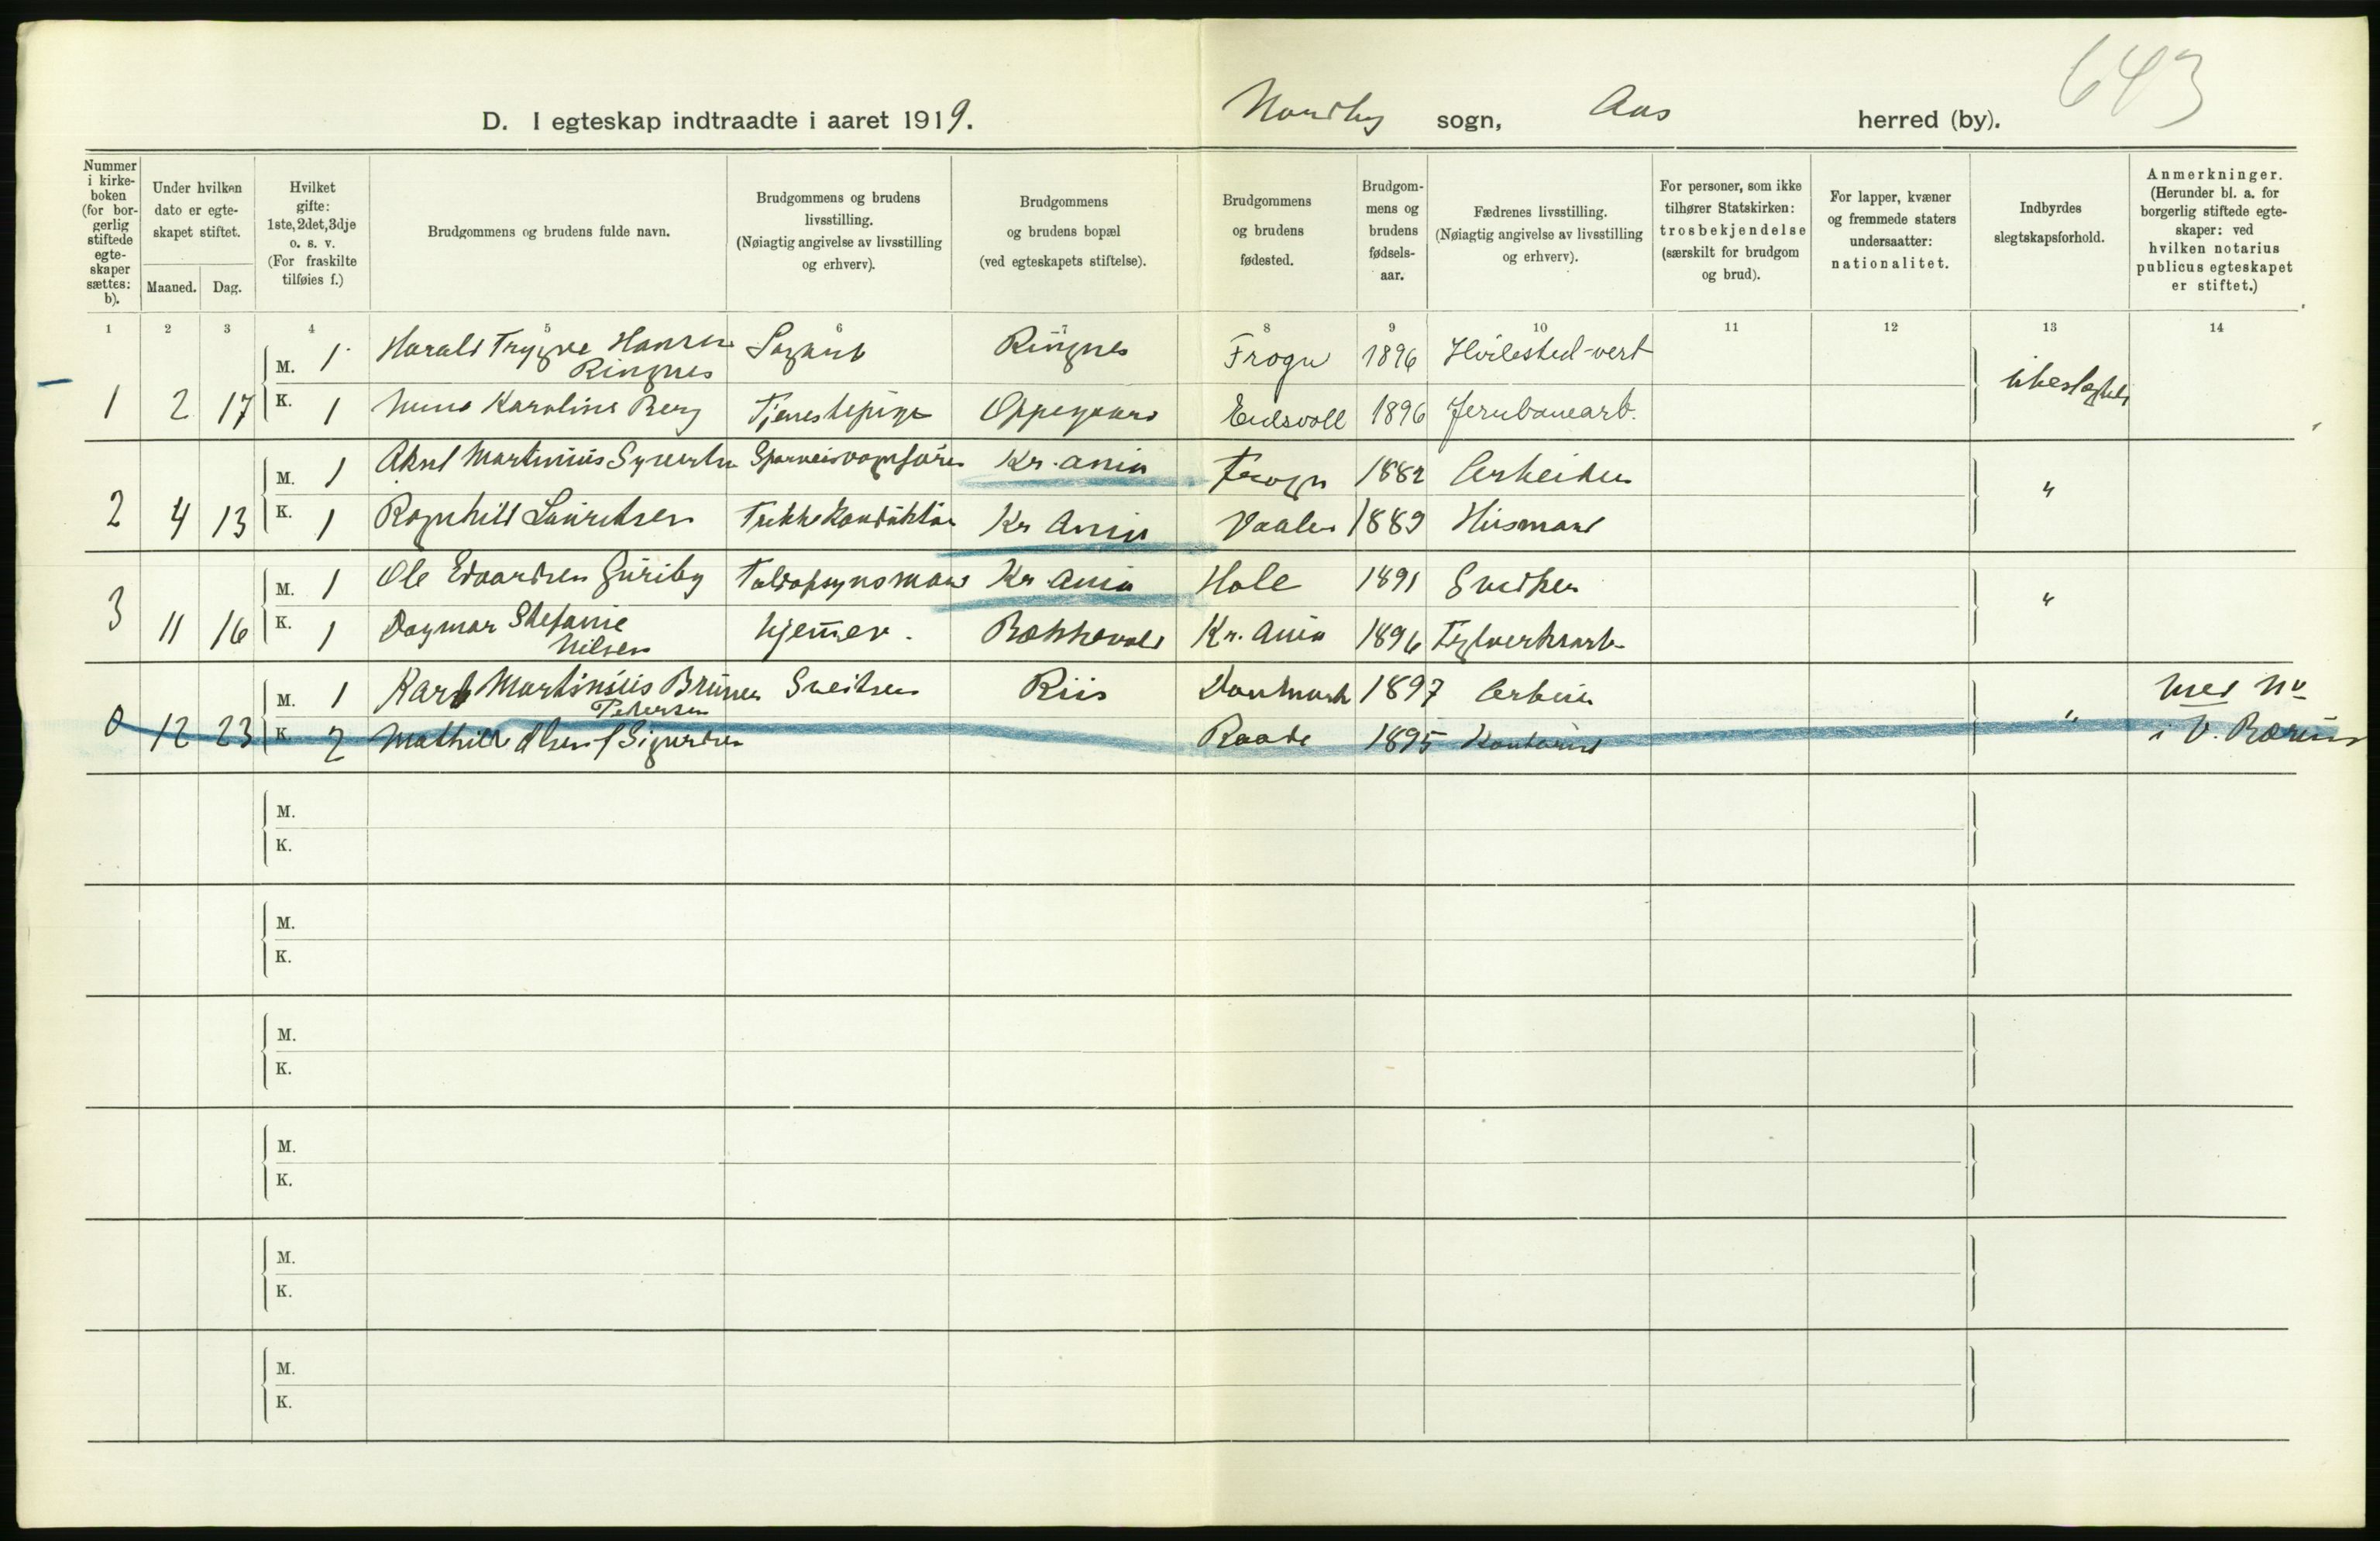 643
D. I egteskap indtraadte i aaret 1919. Nordby sogn, Aas herred (by).
Nummer i kirke-boken (for bor-gerlig stiftede egte-skaper sættes: b).
Under hvilken dato er egte-skapet stiftet.
Maaned. Dag.
Hvilket gifte: 1ste, 2det, 3dje o. s. v. (For fraskilte tilføies f.)
Brudgommens og brudens fulde navn.
Brudgommens og brudens livsstilling. (Nøiagtig angivelse av livsstilling og erhverv).
Brudgommens og brudens bopæl (ved egteskapets stiftelse).
Brudgommens og brudens fødested.
Brudgom-mens og brudens fødsels-aar.
Fædrenes livsstilling. (Nøiagtig angivelse av livsstilling og erhverv).
For personer, som ikke tilhører Statskirken: trosbekjendelse (særskilt for brudgom og brud).
For lapper, kvæner og fremmede staters undersaatter: nationalitet.
Indbyrdes slegtskapsforhold.
Anmerkninger. (Herunder bl. a. for borgerlig stiftede egte-skaper: ved hvilken notarius publicus egteskapet er stiftet.)
1 2 3 4 5 6 7 8 9 10 11 12 13 14
M. 1 Harald Trygve Hansen Ringnes Sagarb Ringnes Frogn 1896 Hvilested-vert
1 2 17 K. 1 Karoline Berg Tjenestepige Oppegaard Eidsvoll 1896 Jernbanearb. ubeslegtet
M. 1 Aksel Martinius Syvertsen Sporveisvognfører Kr.ania Frogn 1882 Arbeider
2 4 13 K. 1 Ragnhild Lauritsen Trikkekonduktør Kr ania Vaaler 1889 Husmand "
M. 1 Ole Edvardsen Guriby Toldopsynsmand Kr ania Hole 1891 Snedker
3 11 16 K. 1 Dagmar Stefanie Nilsen hjemmev. Bækkevold Kr. ania 1896 Teglverksarb. "
M. 1 Karl Martinius Brunes Petersen Sveitser Riis Danmark 1897 Arbeider
0 12 23 K. 2 Mathilde Olsen f Sigurdsen Raade 1895 "
i V. Bærum
M.
K.
M.
K.
M.
K.
M.
K.
M.
K.
M.
K.